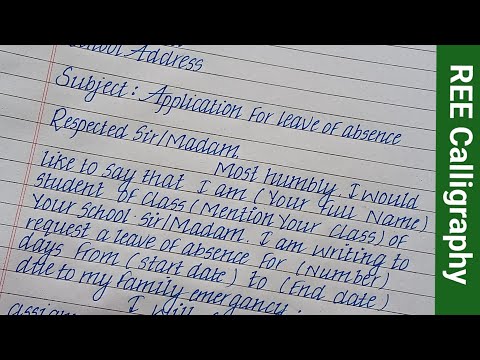 School Address
Subject : Application For leave of absence
Respected Sir/Madam,
Most humbly I would
like to say that I am (Your Full Name)
student of class (Mention Your Class) of
Your School. Sir/Madam. I am writing to
request a leave of absence for (Number)
days from (Start date) to (End date)
due to my family emergency.
I will
REE Calligraphy